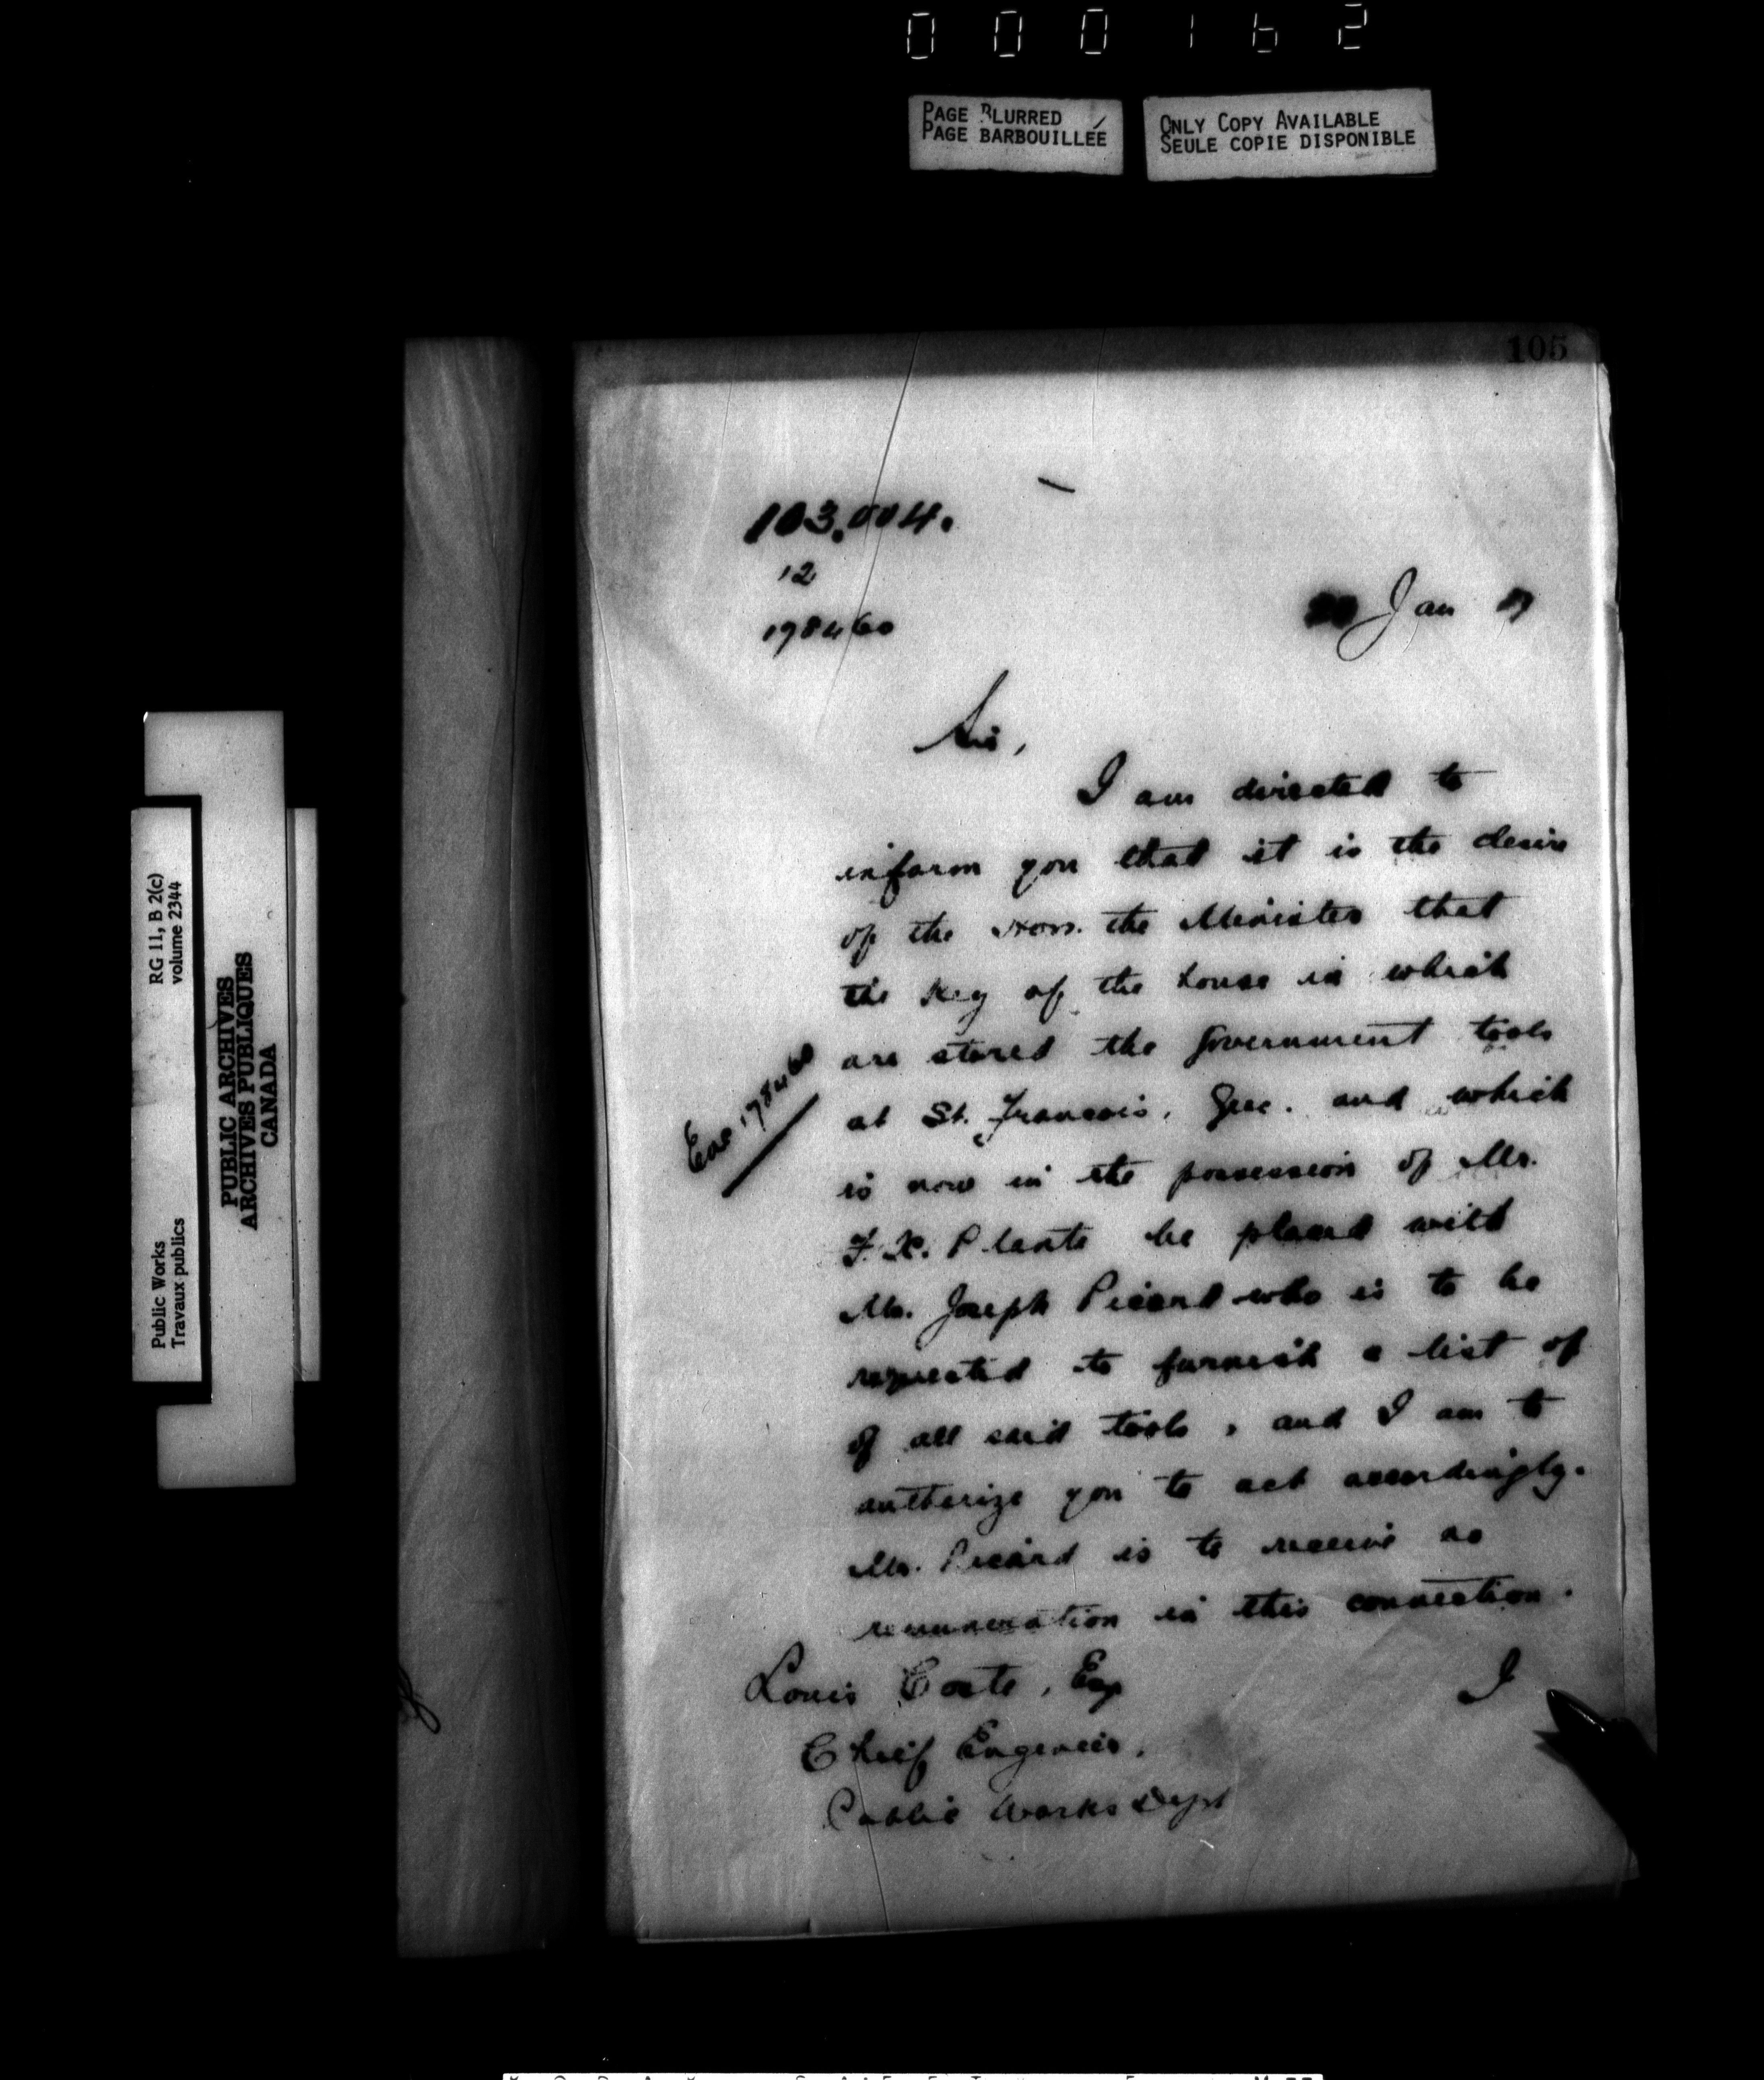 000162
PAGE BLURRED
PAGE BARBOUILLÉE
ONLY COPY AVAILABLE
SEULE COPIE DISPONIBLE
105
103,004.
12
178460
Jan
Sir,
I am directed to
inform you that it is the desire
of the Hon. the Minister that
the key of the house in which
are stored the Government tools
at St. Francois, Que. and which
is now in the possession of Mr.
F. X. Plante be placed with
Mr. Joseph Picard who is to be
requested to furnish a list of
of all said tools, and I am to
authorize you to act accordingly.
Mr. Picard is to receive no
remuneration in this connection.
I
Louis Coste, Esq
Chief Engineer,
Public Works Dept
178460
Public Works
Travaux publics
RG 11, B 2(c)
volume 2344
PUBLIC ARCHIVES
ARCHIVES PUBLIQUES
CANADA